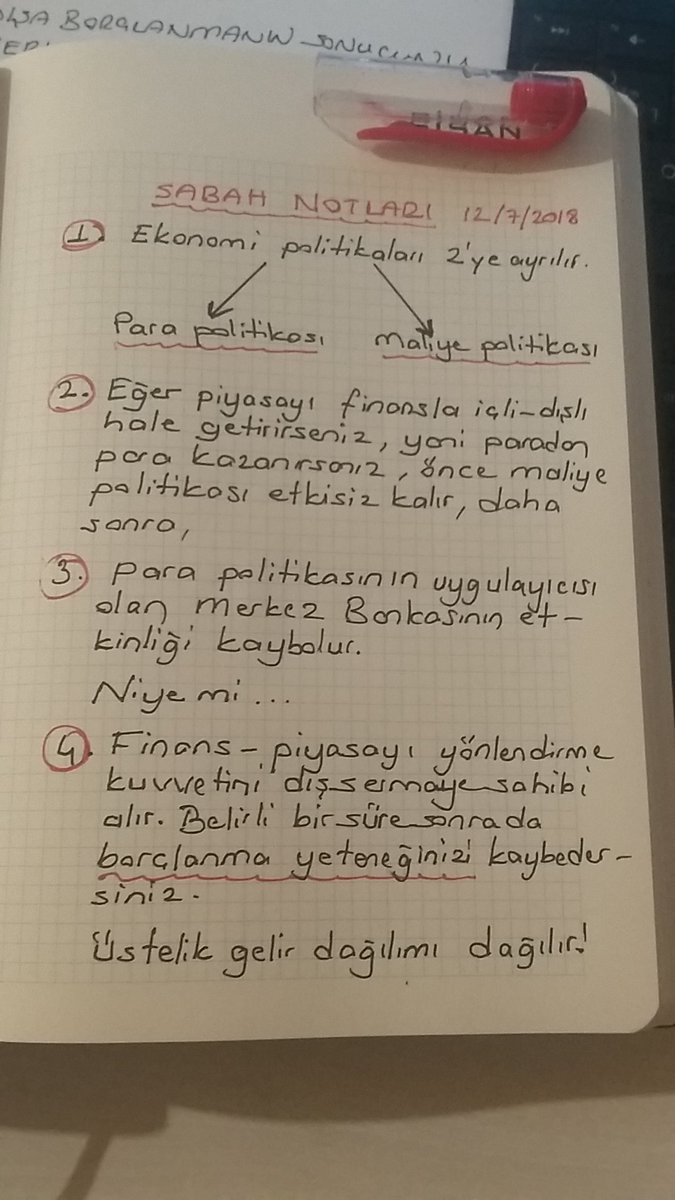 BORÇLANMANIN
CİHAN
SABAH NOTLARI 12/7/2018
1. Ekonomi politikaları 2'ye ayrılır.
Para politikası Maliye politikası
2. Eğer piyasayı finansla içli-dışlı
hale getirirseniz, yani paradan
para kazanırsanız, önce maliye
politikası etkisiz kalır, daha
sonra,
3. Para politikasının uygulayıcısı
olan Merkez Bankasının et-
kinliği kaybolur.
Niye mi...
4. Finans-piyasayı yönlendirme
kuvvetini dış sermaye sahibi
alır. Belirli bir süre sonra da
borçlanma yeteneğinizi kaybeder-
siniz.
Üstelik gelir dağılımı dağılır!